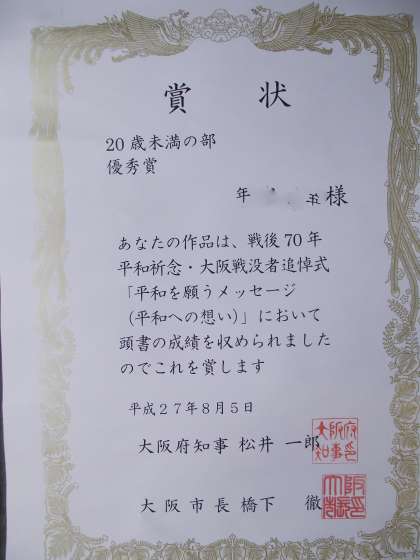 賞状
20歳未満の部
優秀賞
年 様
あなたの作品は、戦後70年
平和祈念・大阪戦没者追悼式
「平和を願うメッセージ
（平和への想い）」において
頭書の成績を収められました
のでこれを賞します
平成27年8月5日
大阪府知事 松井 一郎
大阪府知事印
大阪市長 橋下 徹